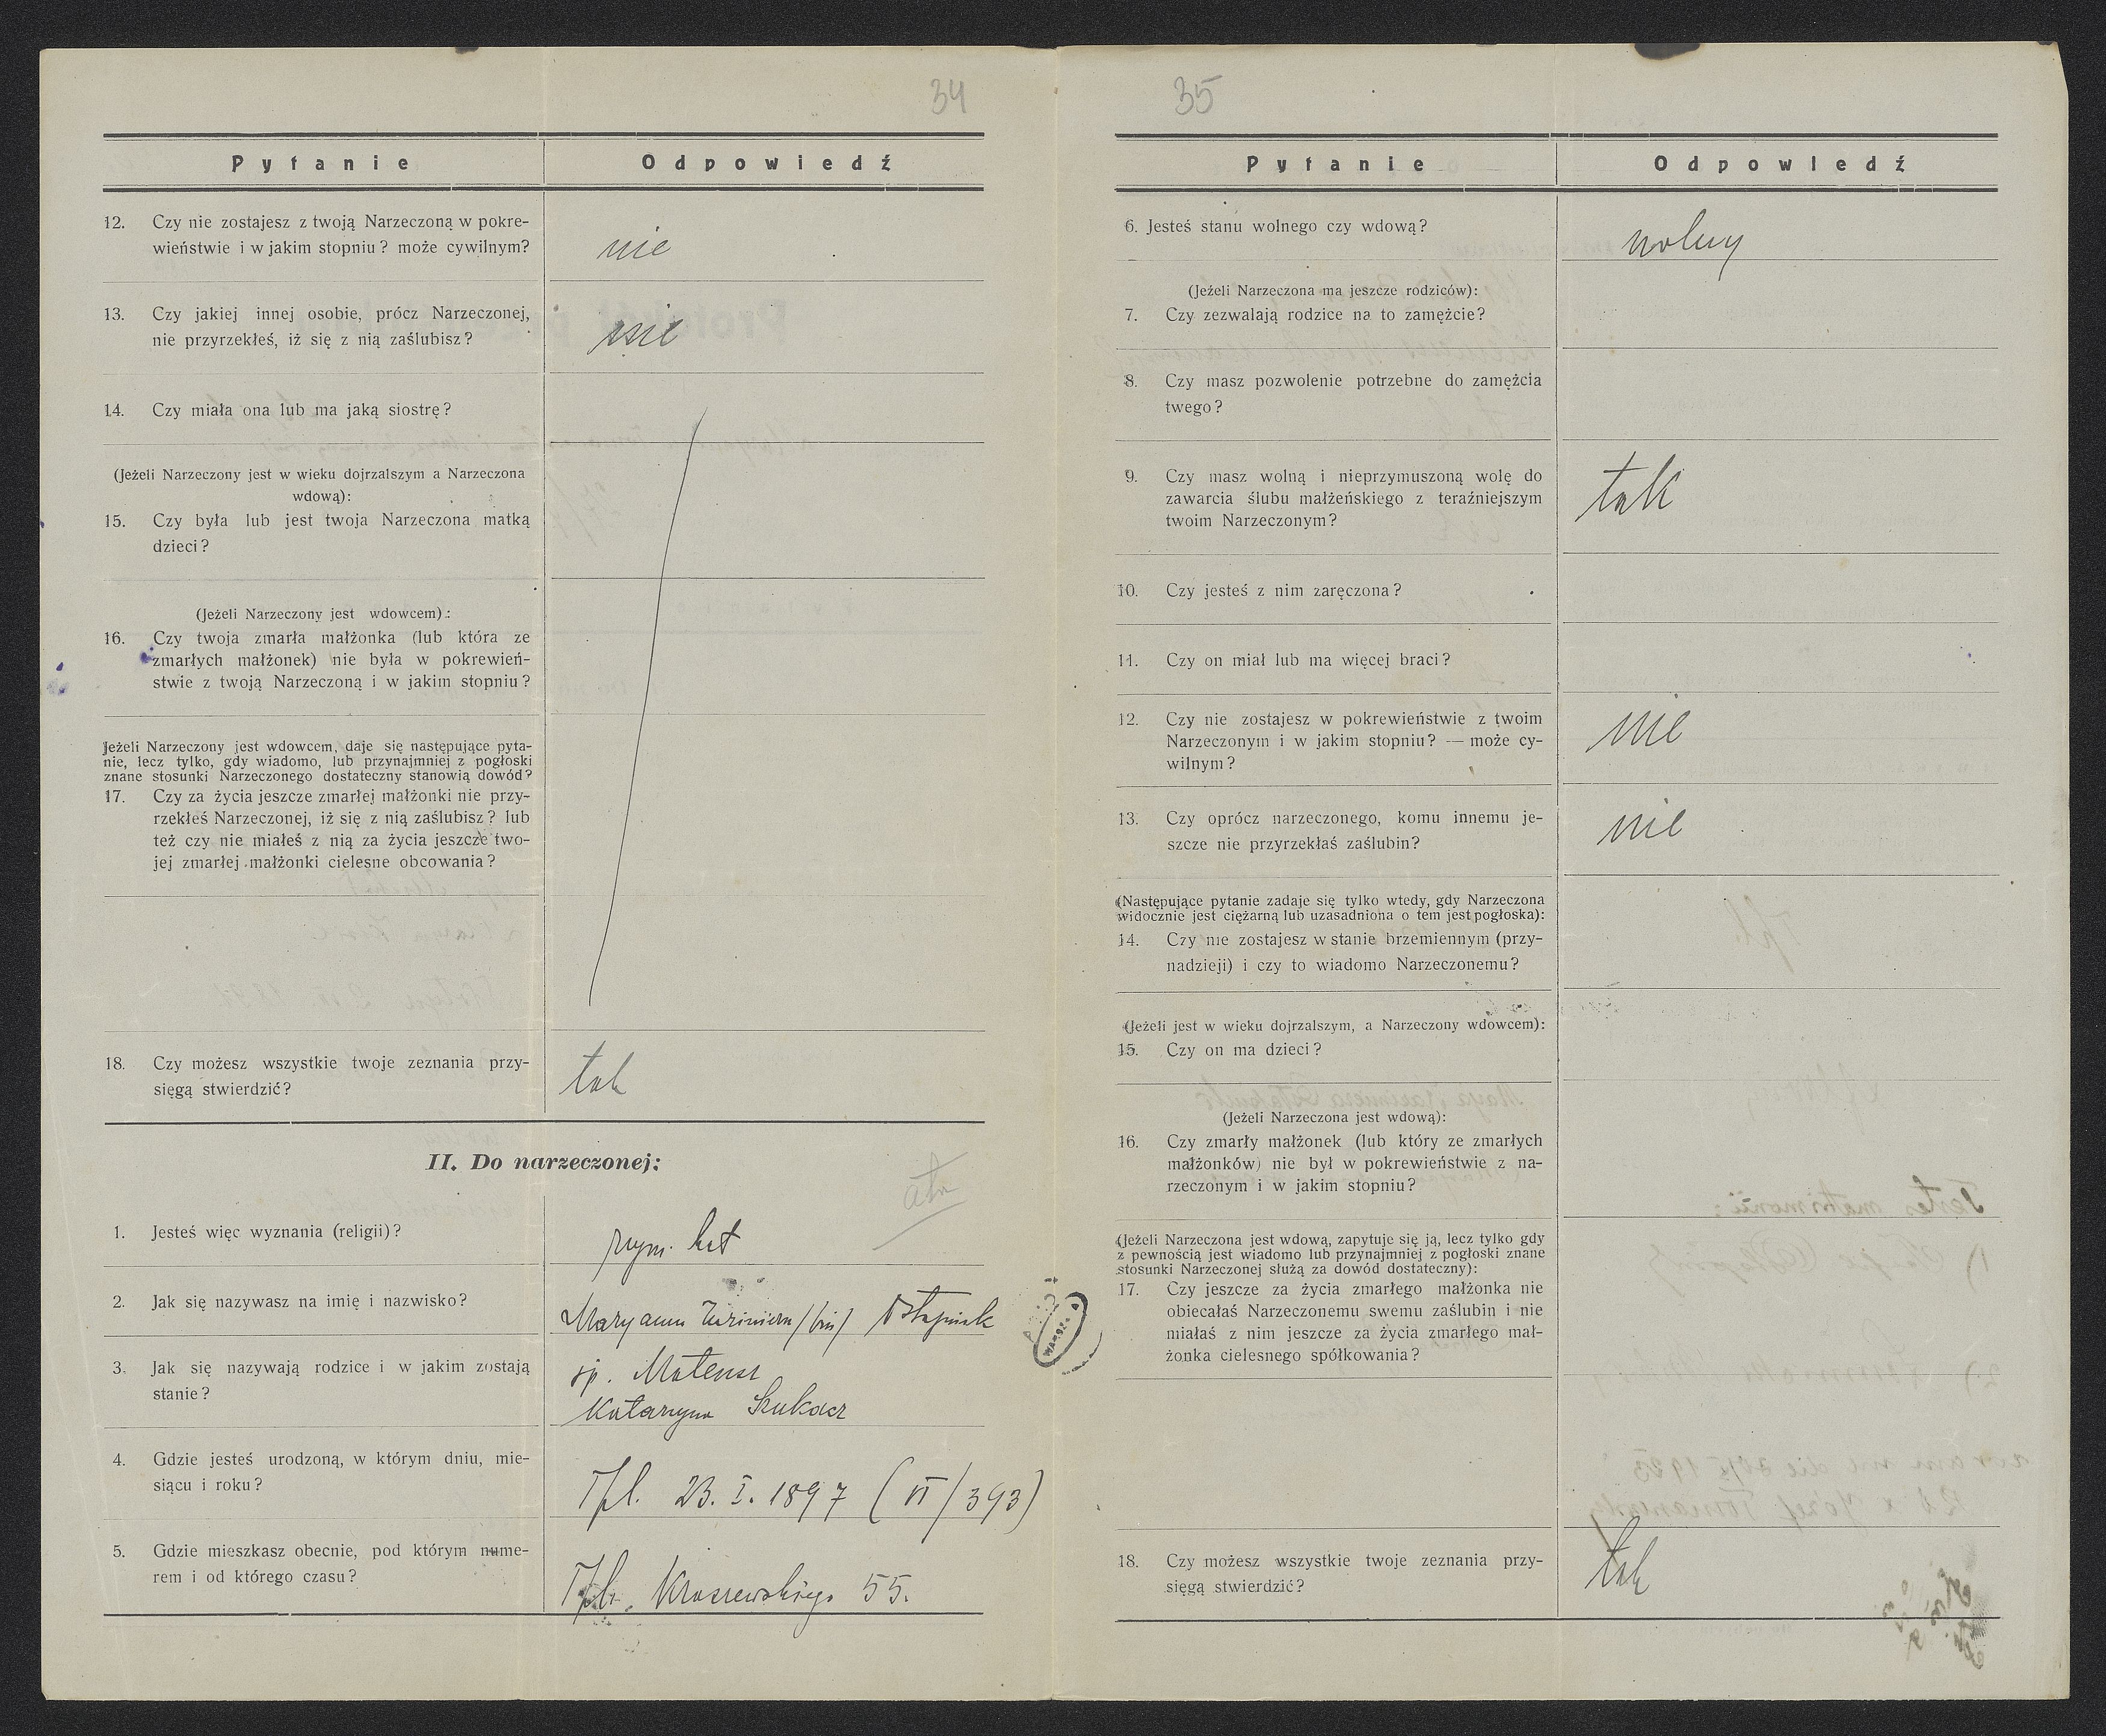 34
Pytanie Odpowiedź
12. Czy nie zostajesz z twoją Narzeczoną w pokre-
wieństwie i w jakim stopniu? może cywilnym?
nie
13. Czy jakiej innej osobie, prócz Narzeczonej,
nie przyrzekłeś, iż się z nią zaślubisz?
nie
14. Czy miała ona lub ma jaką siostrę?
(Jeżeli Narzeczony jest w wieku dojrzalszym a Narzeczona
wdową):
15. Czy była lub jest twoja Narzeczona matką
dzieci?
(Jeżeli Narzeczony jest wdowcem):
16. Czy twoja zmarła małżonka (lub która ze
zmarłych małżonek) nie była w pokrewień-
stwie z twoją Narzeczoną i w jakim stopniu?
Jeżeli Narzeczony jest wdowcem, daje się następujące pyta-
nie, lecz tylko, gdy wiadomo, lub przynajmniej z pogłoski
znane stosunki Narzeczonego dostateczny stanowią dowód?
17. Czy za życia jeszcze zmarłej małżonki nie przy-
rzekłeś Narzeczonej, iż się z nią zaślubisz? lub
też czy nie miałeś z nią za życia jeszcze two-
jej zmarłej małżonki cielesne obcowania?
18. Czy możesz wszystkie twoje zeznania przy-
sięgą stwierdzić?
tak
II. Do narzeczonej:
1. Jesteś więc wyznania (religii)?
rzym. kat
2. Jak się nazywasz na imię i nazwisko?
Maryanna Kazimiera /bin/ Ostapiuk
3. Jak się nazywają rodzice i w jakim zostają
stanie?
śp. Mateusz
Katarzyna Szukacz
4. Gdzie jesteś urodzoną, w którym dniu, mie-
siącu i roku?
Tpl. 23. I. 1897 (VI/393)
5. Gdzie mieszkasz obecnie, pod którym nume-
rem i od którego czasu?
Tpl. Kraszewskiego 55.
35
Pytanie Odpowiedź
6. Jesteś stanu wolnego czy wdową?
wolny
(Jeżeli Narzeczona ma jeszcze rodziców):
7. Czy zezwalają rodzice na to zamężcie?
8. Czy masz pozwolenie potrzebne do zamężcia
twego?
9. Czy masz wolną i nieprzymuszoną wolę do
zawarcia ślubu małżeńskiego z teraźniejszym
twoim Narzeczonym?
tak
10. Czy jesteś z nim zaręczona?
11. Czy on miał lub ma więcej braci?
12. Czy nie zostajesz w pokrewieństwie z twoim
Narzeczonym i w jakim stopniu? — może cy-
wilnym?
nie
13. Czy oprócz narzeczonego, komu innemu je-
szcze nie przyrzekłaś zaślubin?
nie
(Następujące pytanie zadaje się tylko wtedy, gdy Narzeczona
widocznie jest ciężarną lub uzasadniona o tem jest pogłoska):
14. Czy nie zostajesz w stanie brzemiennym (przy-
nadzieji) i czy to wiadomo Narzeczonemu?
(Jeżeli jest w wieku dojrzalszym, a Narzeczony wdowcem):
15. Czy on ma dzieci?
(Jeżeli Narzeczona jest wdową):
16. Czy zmarły małżonek (lub który ze zmarłych
małżonków) nie był w pokrewieństwie z na-
rzeczonym i w jakim stopniu?
(Jeżeli Narzeczona jest wdową, zapytuje się ją, lecz tylko gdy
z pewnością jest wiadomo lub przynajmniej z pogłoski znane
stosunki Narzeczonej służą za dowód dostateczny):
17. Czy jeszcze za życia zmarłego małżonka nie
obiecałaś Narzeczonemu swemu zaślubin i nie
miałaś z nim jeszcze za życia zmarłego mał-
żonka cielesnego spółkowania?
18. Czy możesz wszystkie twoje zeznania przy-
sięgą stwierdzić?
tak